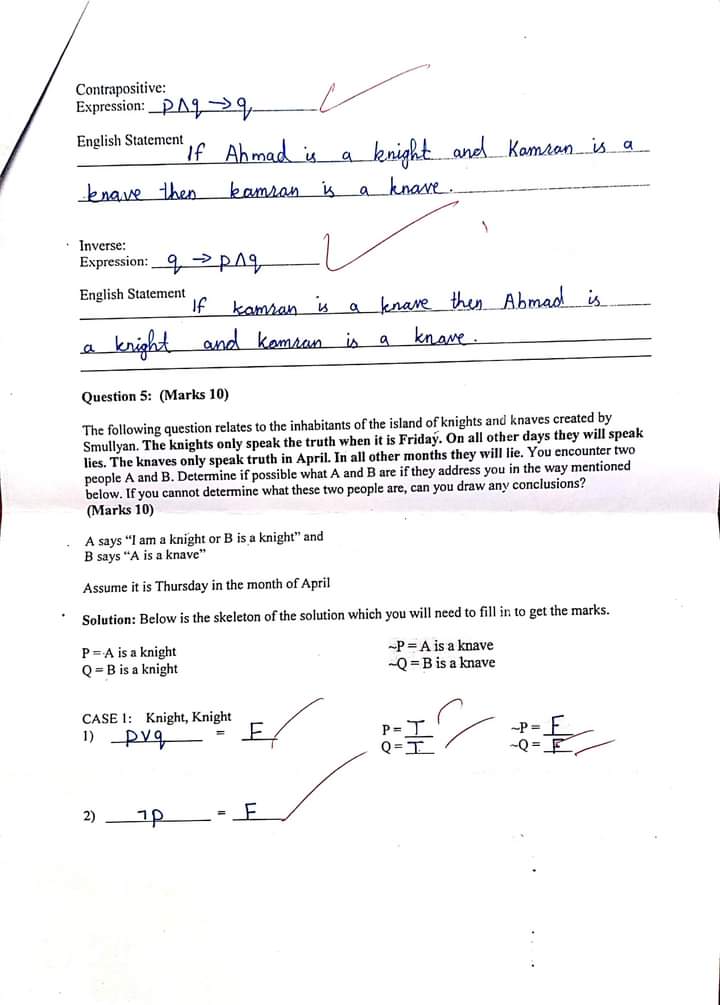 Contrapositive:
Expression: p∧q→q
English Statement If Ahmad is a knight and Kamran is a
knave then kamran is a knave.
Inverse:
Expression: q → p∧q
English Statement If kamran is a knave then Ahmad is
a knight and kamran is a knave.
Question 5: (Marks 10)
The following question relates to the inhabitants of the island of knights and knaves created by
Smullyan. The knights only speak the truth when it is Friday. On all other days they will speak
lies. The knaves only speak truth in April. In all other months they will lie. You encounter two
people A and B. Determine if possible what A and B are if they address you in the way mentioned
below. If you cannot determine what these two people are, can you draw any conclusions?
(Marks 10)
A says "I am a knight or B is a knight" and
B says "A is a knave"
Assume it is Thursday in the month of April
Solution: Below is the skeleton of the solution which you will need to fill in to get the marks.
P = A is a knight ~P = A is a knave
Q = B is a knight ~Q = B is a knave
CASE 1: Knight, Knight
1) p∨q = F P = T ~P = F
Q = T ~Q = F
2) ¬p = F